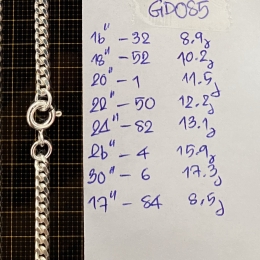 GD085
16" - 32 8.9g
18" - 52 10.2g
20" - 1 11.5g
22" - 50 12.2g
24" - 82 13.1g
26" - 4 15.9g
30" - 6 17.3g
17" - 84 8.5g